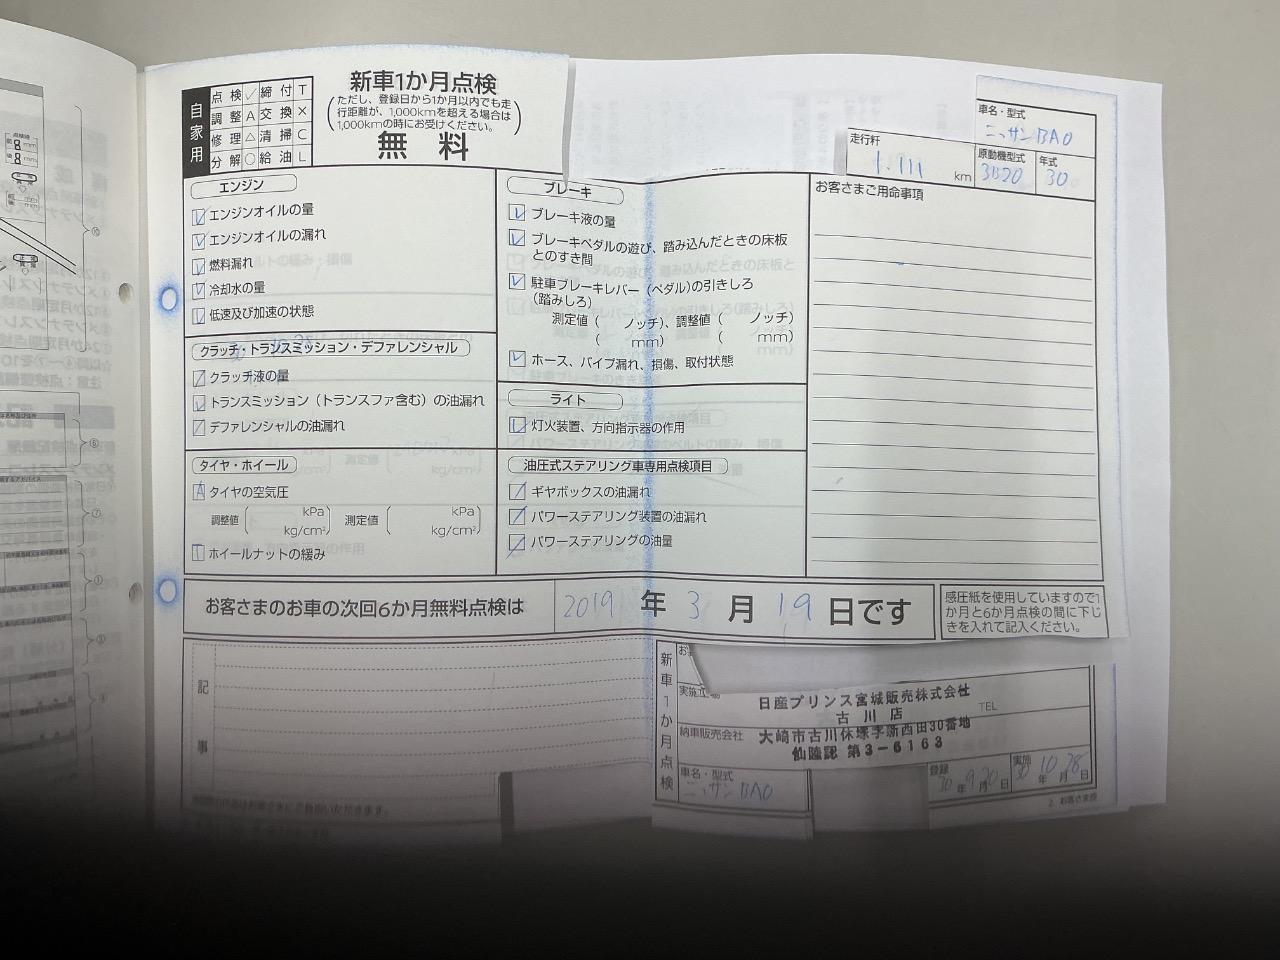 自家用
点検 ✓ 締付 T
調整 A 交換 ×
修理 △ 清掃 C
分解 ○ 給油 L
新車1か月点検
(ただし、登録日から1か月以内でも走
行距離が、1,000kmを超える場合は
1,000kmの時にお受けください。)
無料
車名・型式
ニッサン BA0
走行粁
1.111 km
原動機型式
3B20
年式
30
エンジン
エンジンオイルの量
エンジンオイルの漏れ
燃料漏れ
冷却水の量
低速及び加速の状態
クラッチ・トランスミッション・デファレンシャル
クラッチ液の量
トランスミッション(トランスファ含む)の油漏れ
デファレンシャルの油漏れ
タイヤ・ホイール
A タイヤの空気圧
調整値( kPa kg/cm²) 測定値( kPa kg/cm²)
T ホイールナットの緩み
ブレーキ
ブレーキ液の量
ブレーキペダルの遊び、踏み込んだときの床板
とのすき間
駐車ブレーキレバー(ペダル)の引きしろ
(踏みしろ)
測定値( ノッチ)、調整値( ノッチ)
( mm) ( mm)
ホース、パイプ漏れ、損傷、取付状態
ライト
灯火装置、方向指示器の作用
油圧式ステアリング車専用点検項目
ギヤボックスの油漏れ
パワーステアリング装置の油漏れ
パワーステアリングの油量
お客さまご用命事項
お客さまのお車の次回6か月無料点検は 2019 年 3 月 19 日です
感圧紙を使用していますので1
か月と6か月点検の間に下じ
きを入れて記入ください。
記事
新車1か月点検
日産プリンス宮城販売株式会社
古川店
TEL
納車販売会社
大崎市古川休塚字新西田30番地
仙陸認 第3-6163
車名・型式
ニッサン BA0
登録
30年9月20日
実施
30年10月28日
2. お客さま控